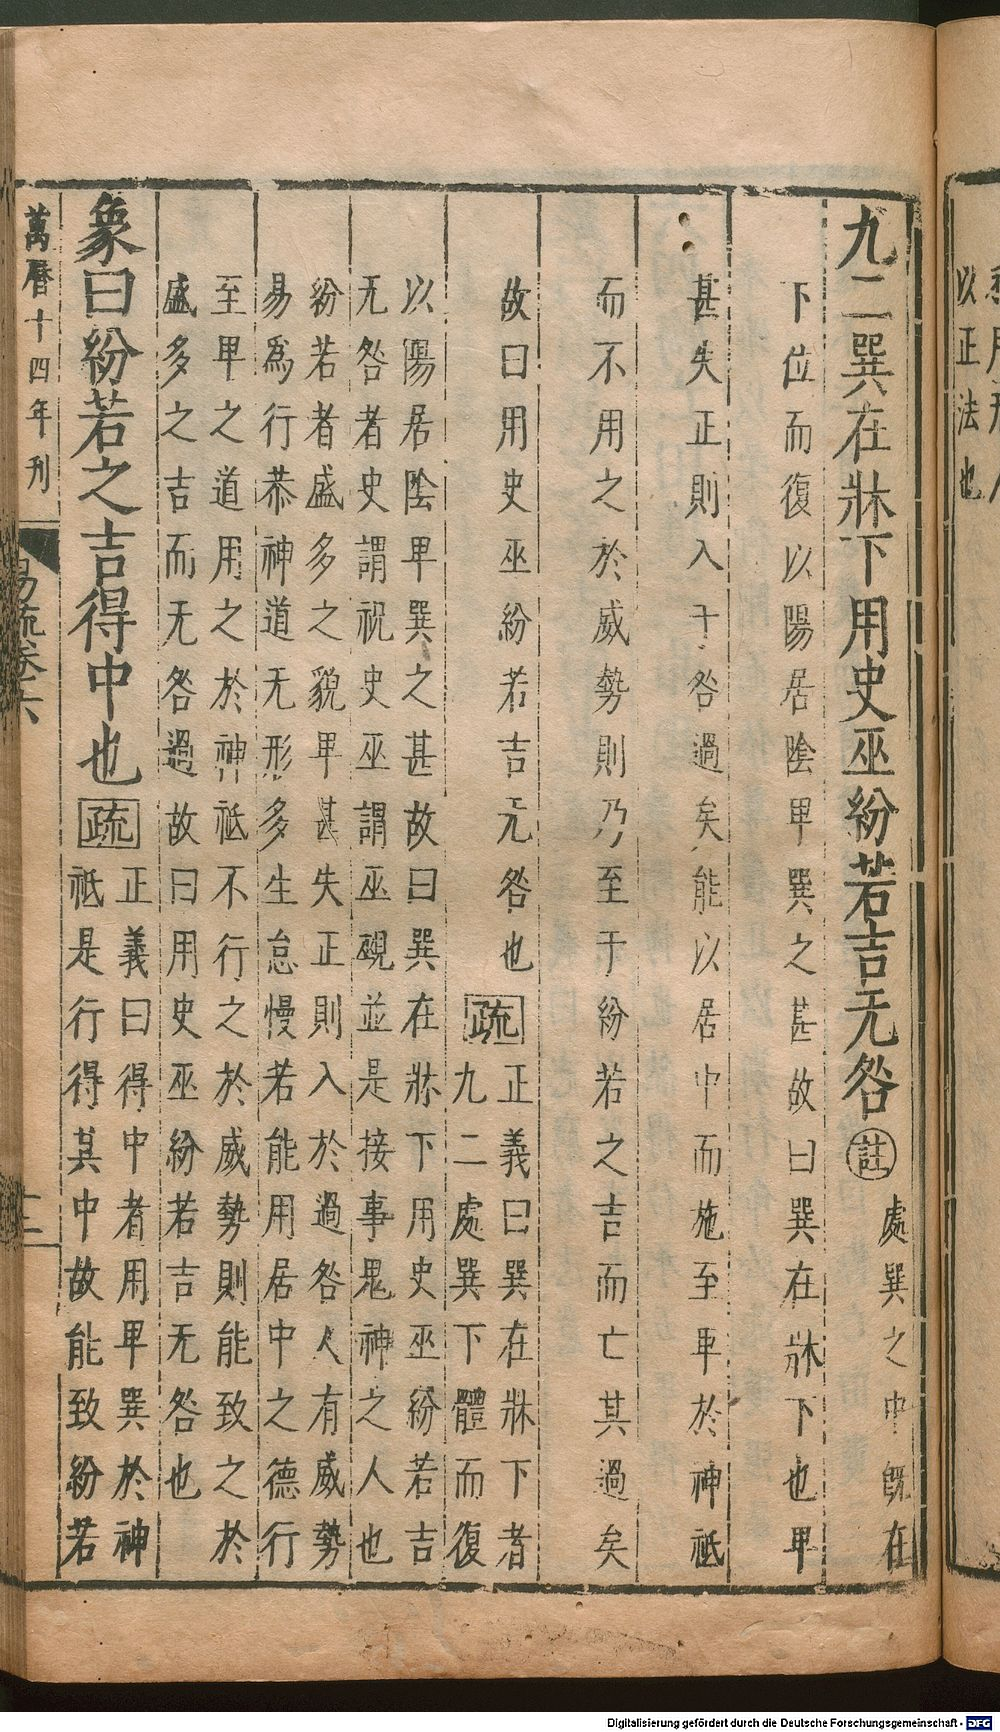 以正法也
九二巽在牀下用史巫紛若吉无咎註處巽之中既在
下位而復以陽居陰卑巽之甚故曰巽在牀下也卑
甚失正則入于咎過矣能以居中而施至卑於神祗
而不用之於威勢則乃至于紛若之吉而亡其過矣
故曰用史巫紛若吉无咎也疏正義曰巽在牀下者
九二處巽下體而復
以陽居陰卑巽之甚故曰巽在牀下用史巫紛若吉
无咎者史謂祝史巫謂巫覡並是接事鬼神之人也
紛若者盛多之貌卑甚失正則入於過咎人有威勢
易為行恭神道无形多生怠慢若能用居中之德行
至卑之道用之於神祗不行之於威勢則能致之於
盛多之吉而无咎過故曰用史巫紛若吉无咎也
象曰紛若之吉得中也疏正義曰得中者用卑巽於神
祗是行得其中故能致紛若
萬曆十四年刊
易疏卷六
十二
Digitalisierung gefördert durch die Deutsche Forschungsgemeinschaft - DFG